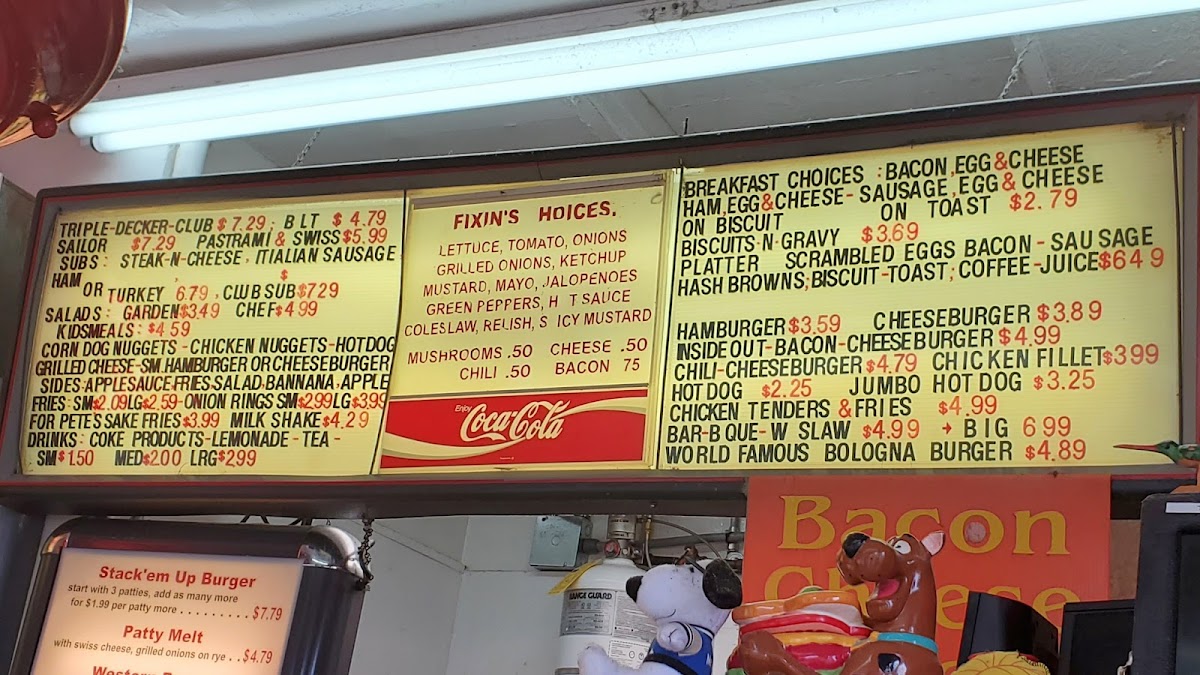 TRIPLE-DECKER-CLUB $7.29; BLT $4.79
SAILOR $7.29 PASTRAMI & SWISS $5.99
SUBS: STEAK-N-CHEESE, ITIALIAN SAUSAGE
HAM OR TURKEY $6.79, CLUB SUB $729
SALADS: GARDEN $3.49 CHEF $4.99
KIDSMEALS: $4.59
CORN DOG NUGGETS-CHICKEN NUGGETS-HOTDOG
GRILLED CHEESE-SM.HAMBURGER OR CHEESEBURGER
SIDES:APPLESAUCE-FRIES,SALAD,BANNANA,APPLE
FRIES-SM$2.09LG$2.59-ONION RINGS SM$299LG$3.99
FOR PETES SAKE FRIES $3.99 MILK SHAKE $4.29
DRINKS: COKE PRODUCTS-LEMONADE-TEA-
SM$1.50 MED$2.00 LRG$2.99
FIXIN'S HOICES.
LETTUCE, TOMATO, ONIONS
GRILLED ONIONS, KETCHUP
MUSTARD, MAYO, JALOPENOES
GREEN PEPPERS, H T SAUCE
COLESLAW, RELISH, S ICY MUSTARD
MUSHROOMS .50 CHEESE .50
CHILI .50 BACON 75
Enjoy
Coca-Cola
BREAKFAST CHOICES :BACON,EGG&CHEESE
HAM,EGG&CHEESE-SAUSAGE,EGG & CHEESE
ON BISCUIT ON TOAST $2.79
BISCUITS-N-GRAVY $3.69
PLATTER SCRAMBLED EGGS BACON-SAUSAGE
HASH BROWNS;BISCUIT-TOAST;COFFEE-JUICE$649
HAMBURGER $3.59 CHEESEBURGER $3.89
INSIDE OUT-BACON-CHEESEBURGER $4.99
CHILI-CHEESEBURGER $4.79 CHICKEN FILLET $399
HOT DOG $2.25 JUMBO HOT DOG $3.25
CHICKEN TENDERS & FRIES $4.99
BAR-B QUE-W SLAW $4.99 → BIG 6 99
WORLD FAMOUS BOLOGNA BURGER $4.89
Stack'em Up Burger
start with 3 patties, add as many more
for $1.99 per patty more . . . . . . . . . $7.79
Patty Melt
with swiss cheese, grilled onions on rye . . $4.79
Western
RANGE GUARD
Bacon
Cheese